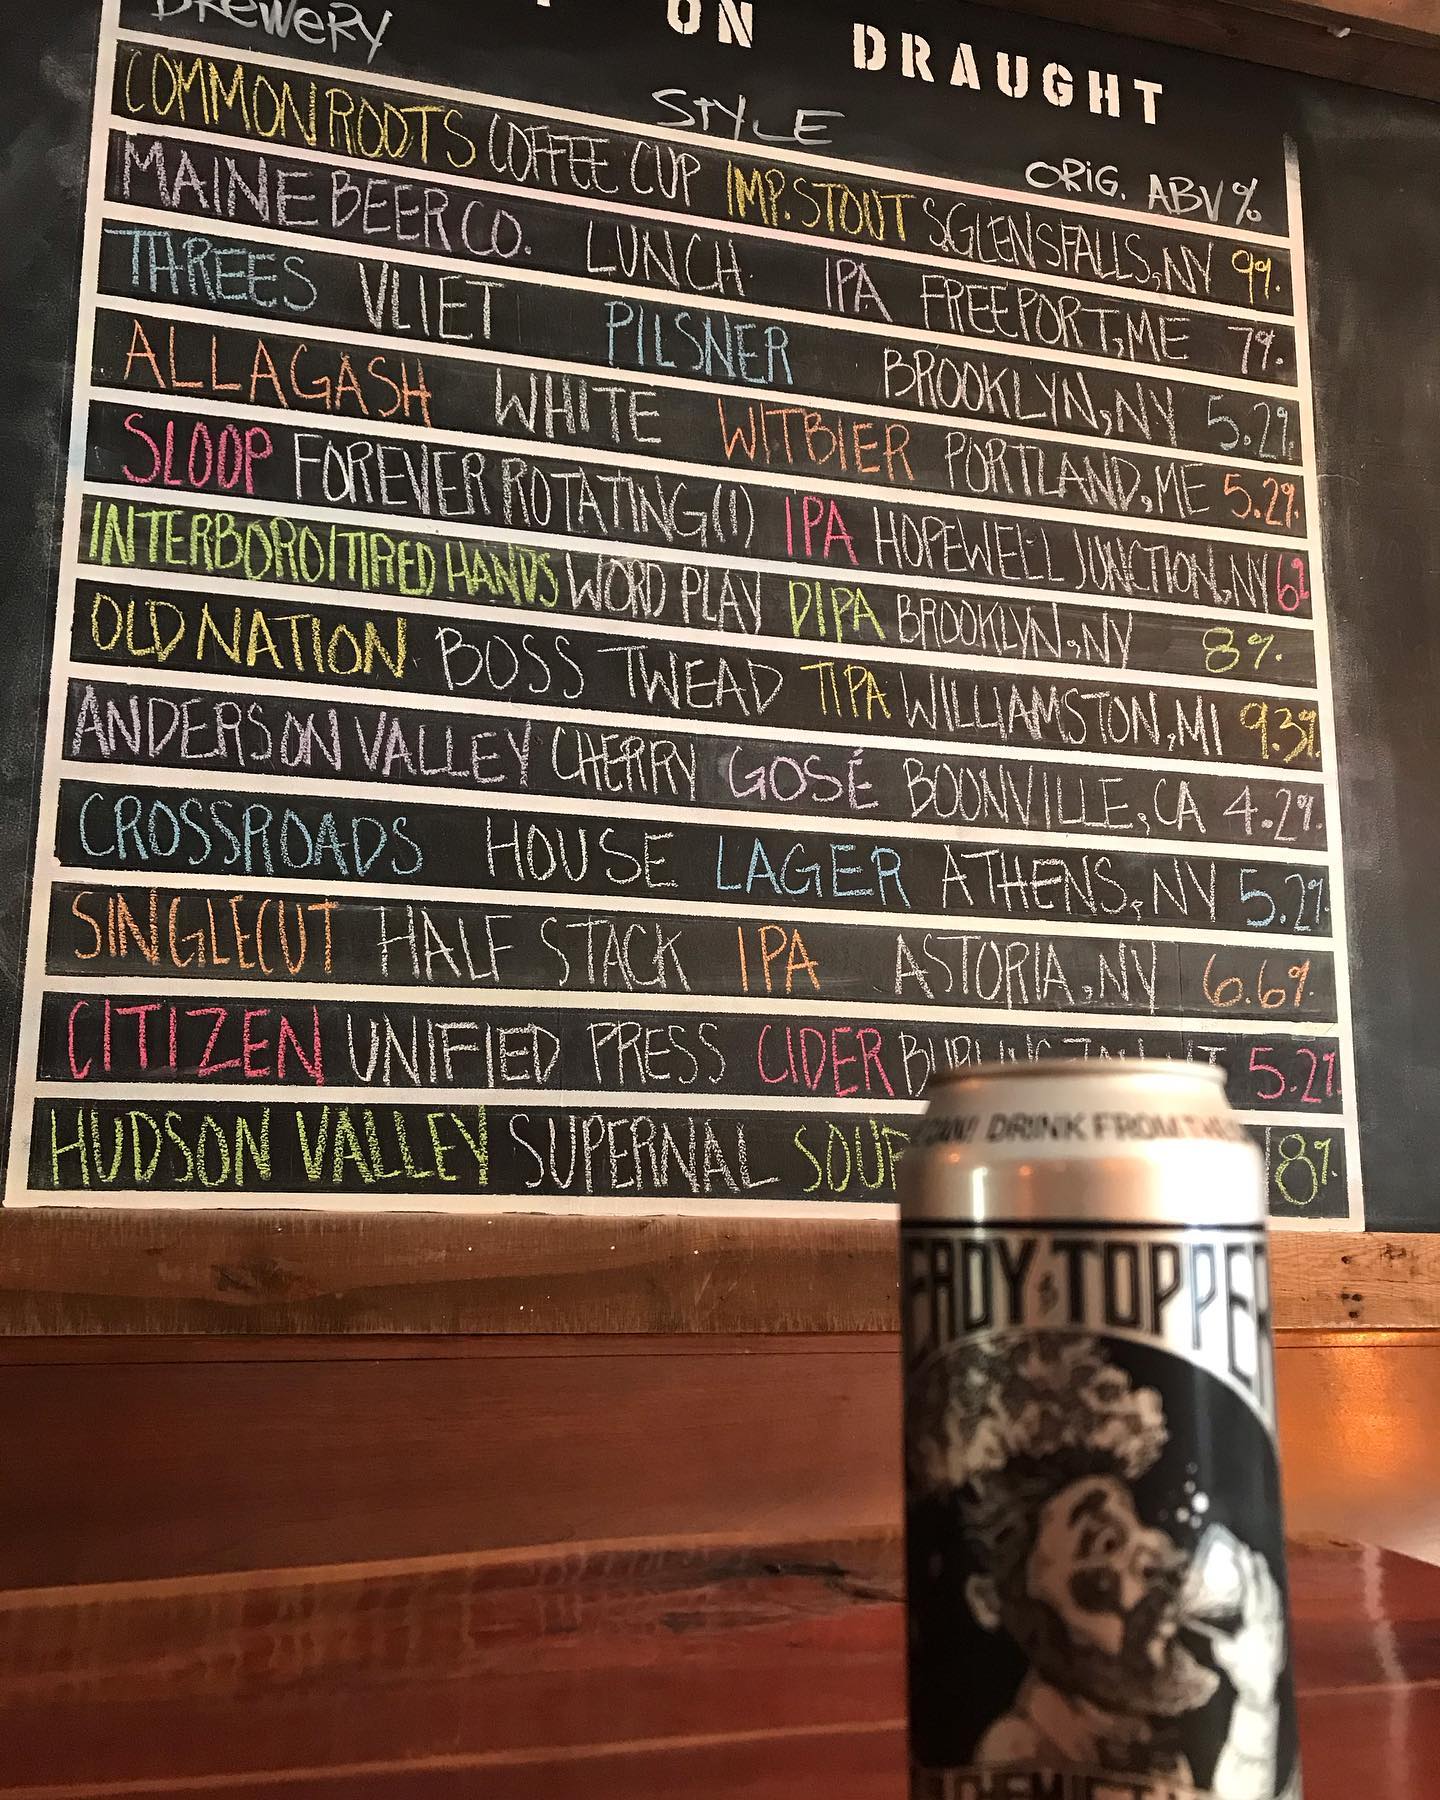 ON DRAUGHT
BREWERY STYLE ORIG. ABV%
COMMON ROOTS COFFEE CUP IMP. STOUT S.GLENS FALLS, NY 9%
MAINE BEER CO. LUNCH IPA FREEPORT, ME 7%
THREES VLIET PILSNER BROOKLYN, NY 5.2%
ALLAGASH WHITE WITBIER PORTLAND, ME 5.2%
SLOOP FOREVER ROTATING (1) IPA HOPEWELL JUNCTION, NY 6%
INTERBORO/TIRED HANDS WORD PLAY DIPA BROOKLYN, NY 8%
OLD NATION BOSS TWEAD TIPA WILLIAMSTON, MI 9.3%
ANDERSON VALLEY CHERRY GOSÉ BOONVILLE, CA 4.2%
CROSSROADS HOUSE LAGER ATHENS, NY 5.2%
SINGLECUT HALF STACK IPA ASTORIA, NY 6.6%
CITIZEN UNIFIED PRESS CIDER 5.2%
HUDSON VALLEY SUPERNAL SOUR 8%
CAN! DRINK FROM THE
EADY TOPPER